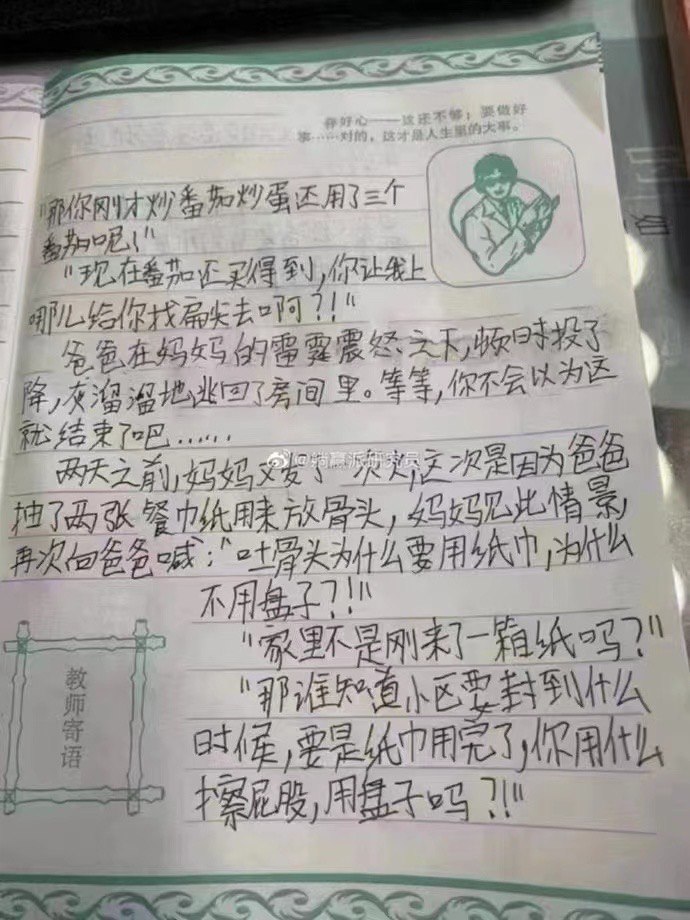 有好心——这还不够；要做好
事……对的，这才是人生里的大事。
"那你刚才炒番茄炒蛋还用了三个
番茄呢！"
"现在番茄还买得到，你让我上
哪儿给你找扁尖去啊？！"
爸爸在妈妈的雷霆震怒之下，顿时投了
降，灰溜溜地逃回了房间里。等等，你不会以为这
就结束了吧……
@躺赢派研究员
两天之前，妈妈又发了一次火，这次是因为爸爸
抽了两张餐巾纸用来放骨头，妈妈见此情景，
再次向爸爸喊："吐骨头为什么要用纸巾，为什么
不用盘子？！"
"家里不是刚来了一箱纸吗？"
"那谁知道小区要封到什么
时候，要是纸巾用完了，你用什么
擦屁股，用盘子吗？！"
教师寄语